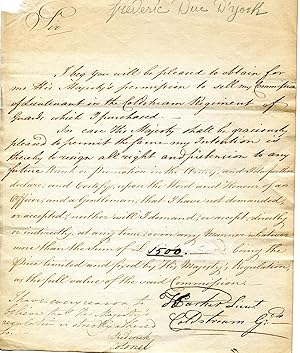 Frederic Duc D'york
Sir
I beg You will be pleased to obtain for
me His Majesty's permission to sell my Commission
of Lieutenant in the Coldstream Regiment of
Guards which I purchased
In case His Majesty shall be graciously
pleased to permit the same my Intention is
thereby to resign all right and pretension to any
future Rank or promotion in the Army, and I do further
declare, and Certify, upon the Word and Honour of an
Officer, and a Gentleman, that I have not demanded
or accepted, neither will I demand, or accept, directly
or indirectly, at any time, or in any Manner whatever
more than the Sum of £1500 being the
Price limited and fixed by His Majesty's Regulation,
as the full value of the said Commission
I have every reason to
believe that His Majesty's
regulation is
Frederick
Colonel
Lieut
Coldstream Gds